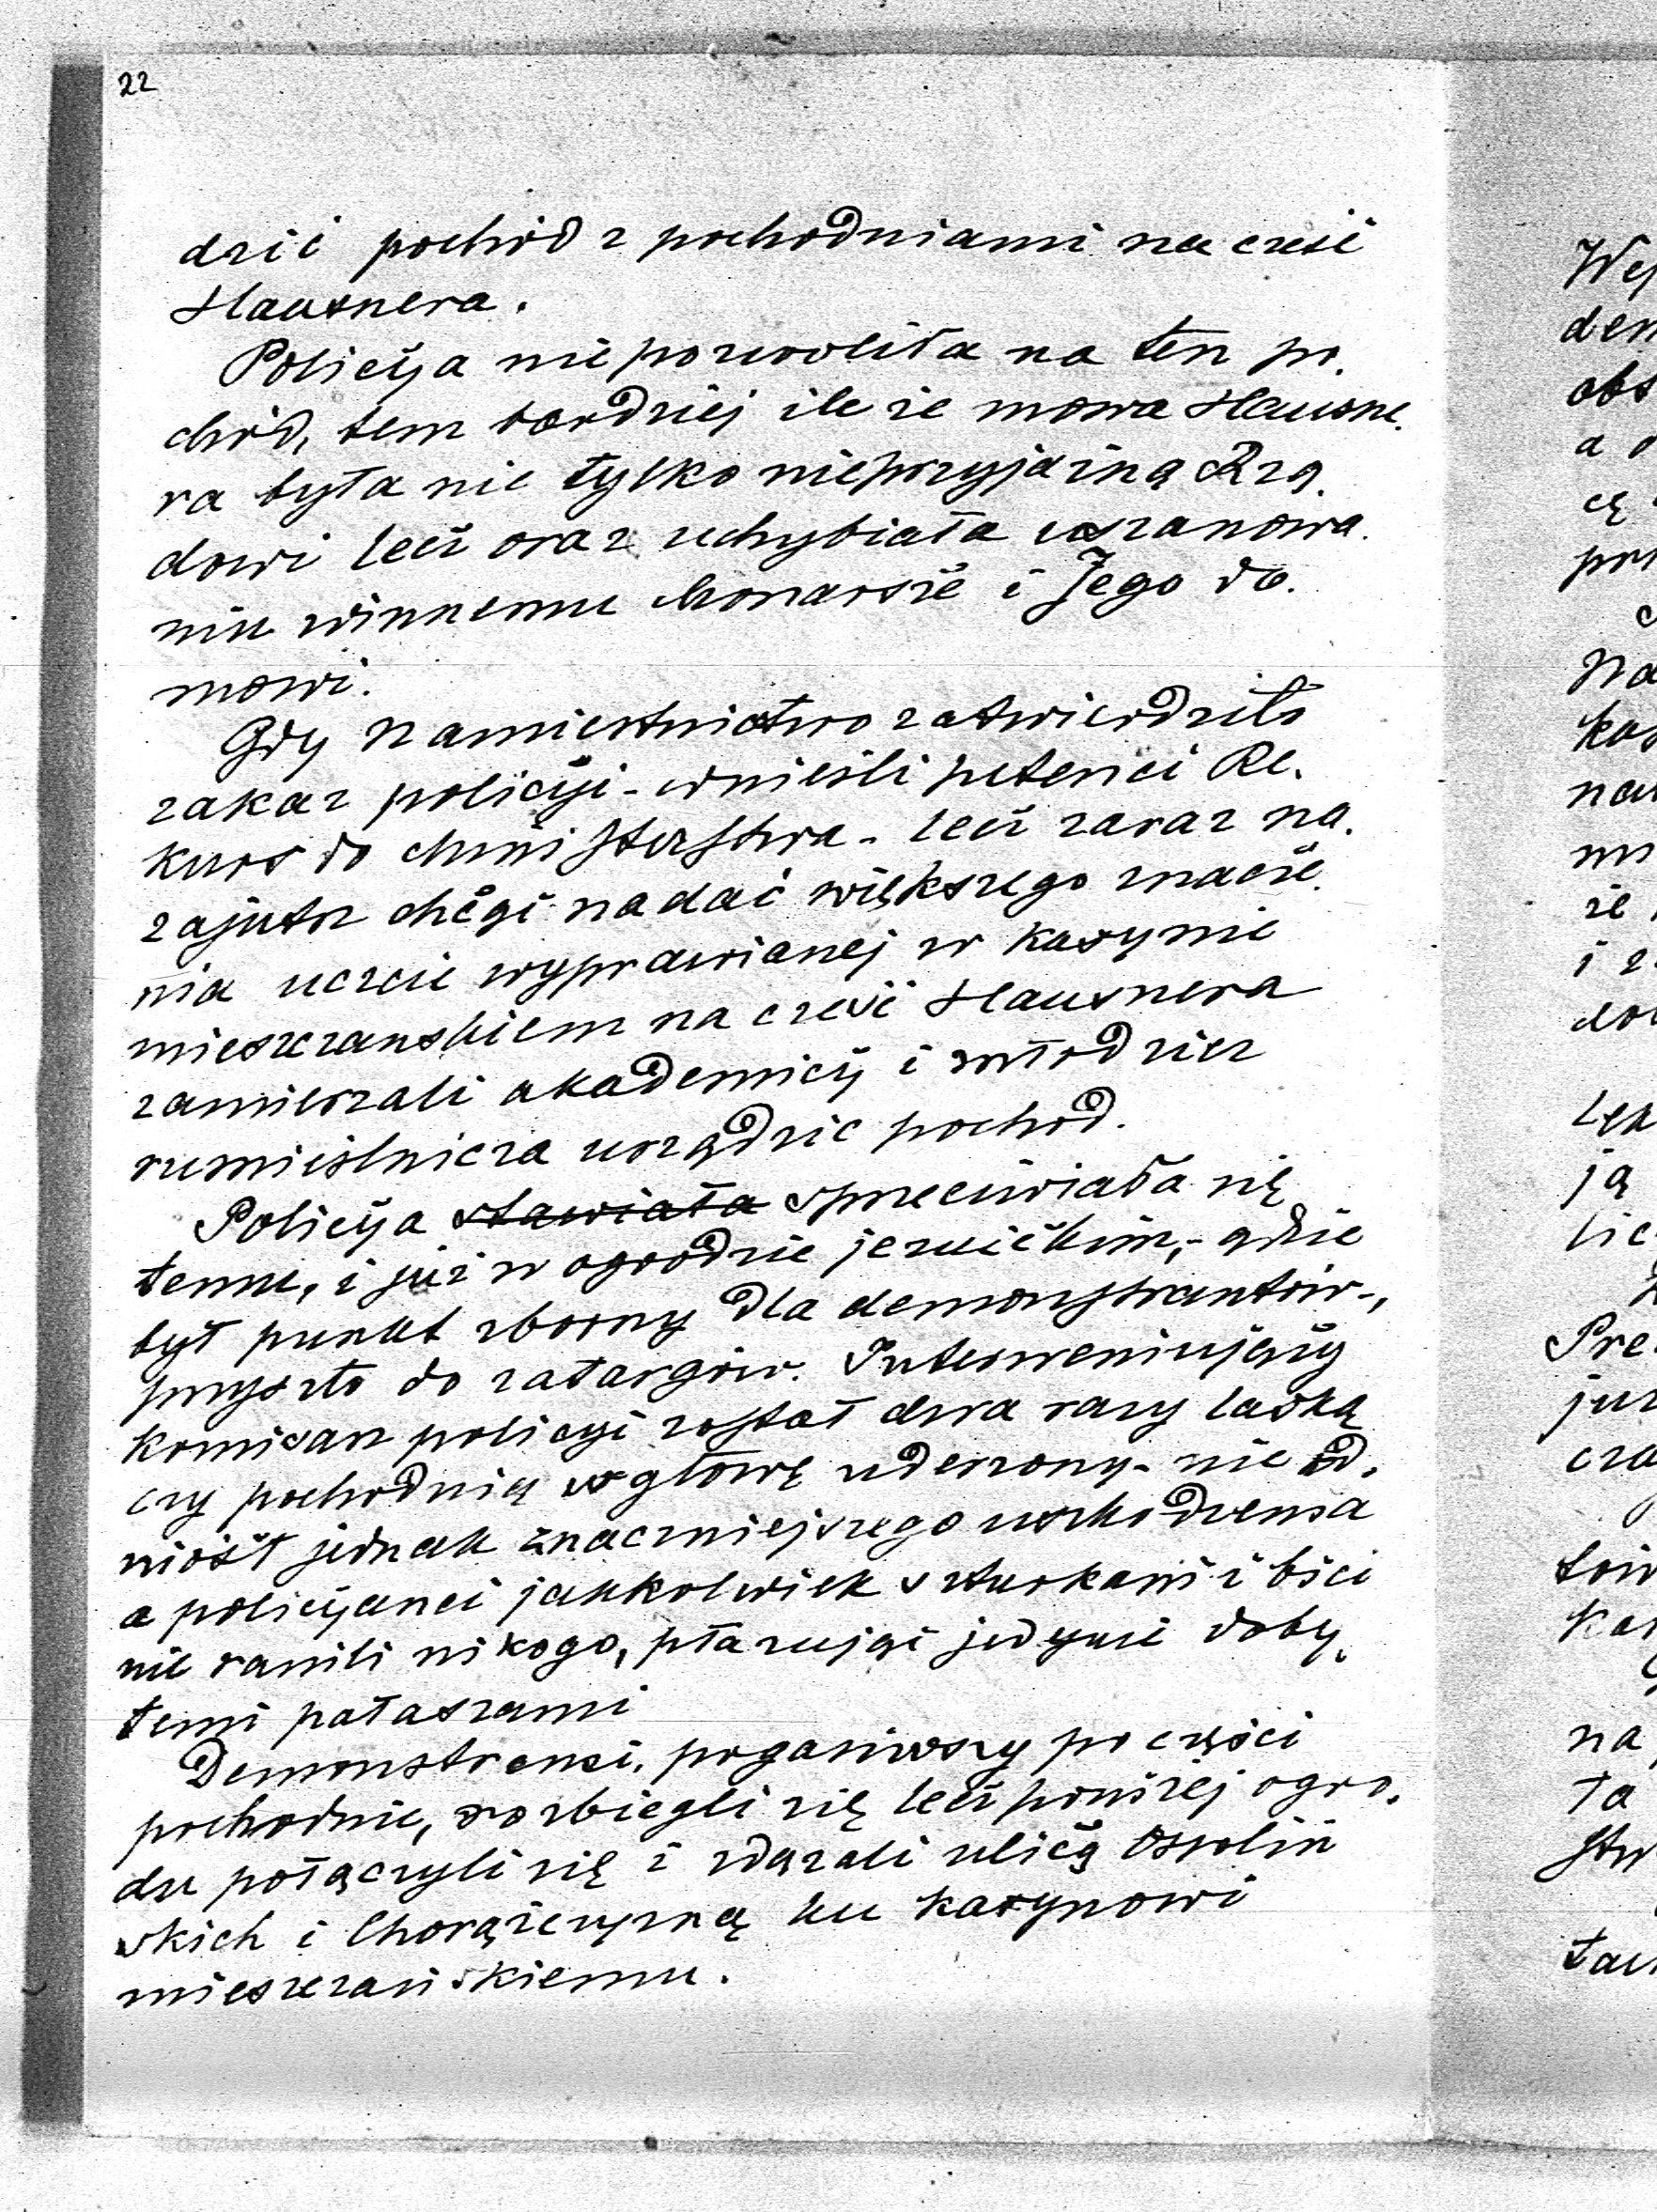 22
dzić pochód z pochodniami na cześć
Hausnera.
Policyja nie pozwoliła na ten po-
chód, tem bardziej ile że mowa Hausne-
ra była nie tylko nieprzyjaźną Rzą-
dowi lecz oraz uchybiała uszanowa-
niu winnemu Monarsze i Jego do-
mowi.
Gdy Namiestnictwo zatwierdziło
zakaz policyji - wnieśli petenci Re-
kurs do Ministerstwa - lecz zaraz na-
zajutrz chcąc nadać większego znacze-
nia uczcie wyprawianej w kasynie
mieszczanskiem na cześć Hausnera
zamierzali akademicy i młodzież
rzemieślnicza urządzic pochod.
Policyja stawiała sprzeciwiała się
temu, i już w ogrodzie jezuickim, - gdzie
był punkt zborny dla demonstrantów -,
przyszło do zatargów. Interweniujący
komisarz policyi został dwa razy laską
czy pochodnią w głowę uderzony - nie od-
niósł jednak znaczniejszego uszkodzenia
a policyanci jakkolwiek szturkani i bici
nie ranili nikogo, płazując jedynie doby-
temi pałaszami
Demonstranci, pogasiwszy po części
pochodnie, rozbiegli się lecz poniżej ogro-
du połączyli się i zdązali ulicą Ossoliń
skich i Chorążczyzną ku kasynowi
mieszczańskiemu.